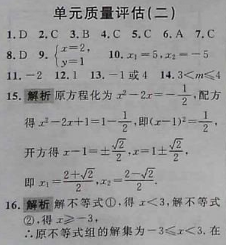 单元质量评估(二)
1. D 2. C 3. B 4. C 5. C 6. A 7. C
8. D 9. {x=2, y=1 10. x₁=5, x₂=-5
11. -2 12. 1 13. -1或4 14. 3<m≤4
15. 解析 原方程化为x²-2x=-1/2, 配方
得x²-2x+1=1-1/2, 即(x-1)²=1/2,
开方得x-1=±√2/2, x=1±√2/2,
即x₁=(2+√2)/2, x₂=(2-√2)/2.
16. 解析 解不等式①, 得x<3, 解不等式
②, 得x≥-3,
∴原不等式组的解集为-3≤x<3. 在